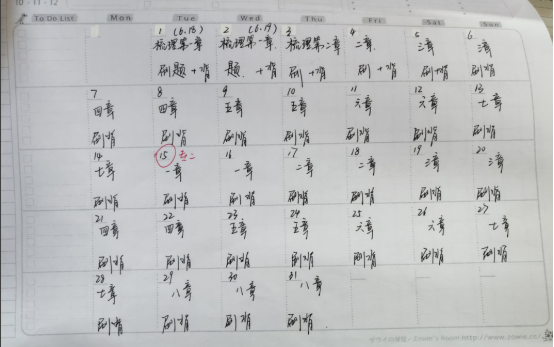 10 · 11 · 12
To Do List Mon Tue Wed Thu Fri Sat Sun
1 (6.18) 2 (6.19) 3 4 5 6
梳理第一章 梳理第一章 梳理第二章 二章 三章 三章
刷题+背 题. +背 刷+背 刷+背 刷+背 刷背
7 8 9 10 11 12 13
四章 四章 五章 五章 六章 六章 七章
刷背 刷背 刷背 刷背 刷背 刷背 刷背
14 15 16 17 18 19 20
七章 一章 一章 二章 二章 三章 三章
刷背 刷背 刷背 刷背 刷背 刷背 刷背
21 22 23 24 25 26 27
四章 四章 五章 五章 六章 六章 七章
刷背 刷背 刷背 刷背 刷背 刷背 刷背
28 29 30 31
七章 八章 八章 八章
刷背 刷背 刷背 刷背